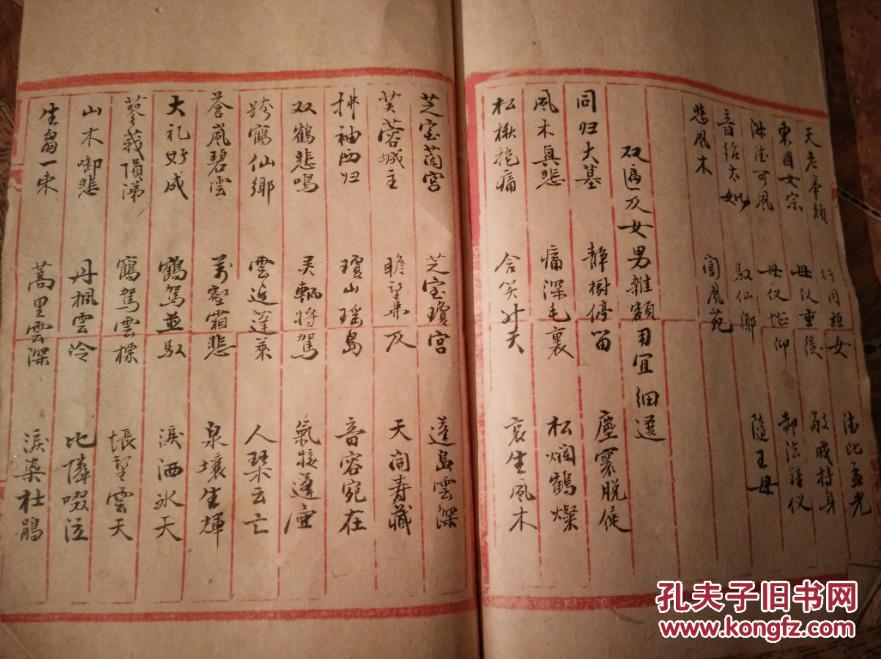 天老奉頌 行同桓女 法比孟光
東回女宗 母仪重後 敬戒持身
淑德可風 母仪怅仰 郝法鍾仪
音绍太姒 馭仙鄉 隨王母
悲風木 閬風苑
双扁及女男雜額用宜细選
同归大墓 静樹停留 塵寰脱屣
風木興悲 痛深毛裏 松烟鶴燦
松楸抱痛 含笑升天 哀生風木
芝室蘭宮 芝室瓊宮 蓬島雲深
芙蓉城主 瞻望弗及 天間寿藏
拂袖西归 瓊山瑶島 音容宛在
双鶴悲鳴 灵輀将駕 氣接蓬壺
跨鶴仙鄉 雲近蓬萊 人琴云亡
蒼嵐碧雲 萬壑霜悲 泉壤生輝
大礼好成 鶴駕並馭 淚洒氷天
蓼莪隕涕 鶴駕雲標 悵望雲天
山木啣悲 丹楓雲冷 比隣啜泣
生芻一束 蒿里雲深 淚染杜鵑
孔夫子旧书网
www.kongfz.com